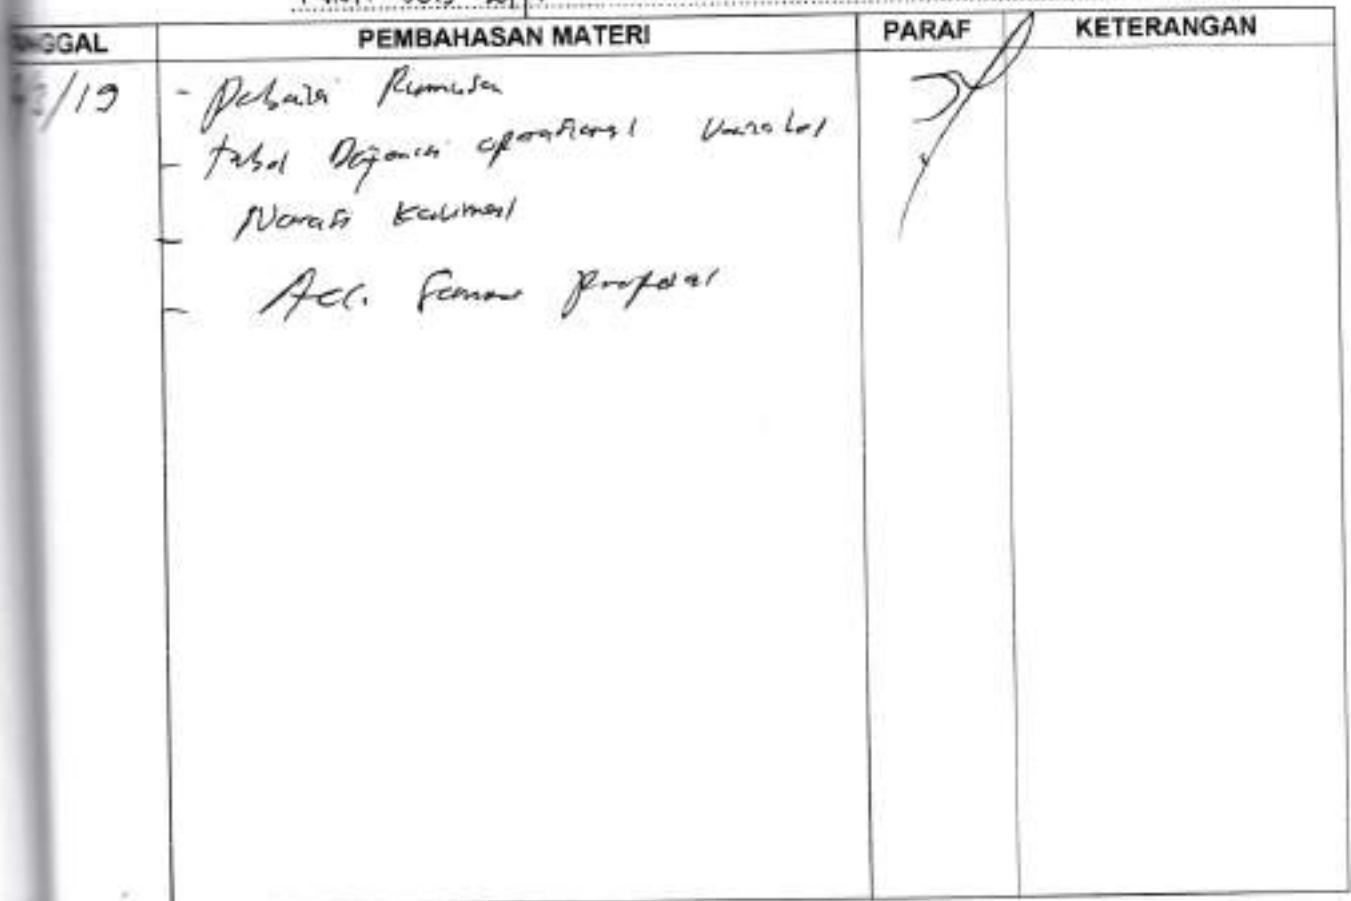 TANGGAL PEMBAHASAN MATERI PARAF KETERANGAN
/19 - Perbaiki Rumusan
- tabel Definisi operasional Variabel
- Narasi Kalimat
- Acc. Seminar Proposal